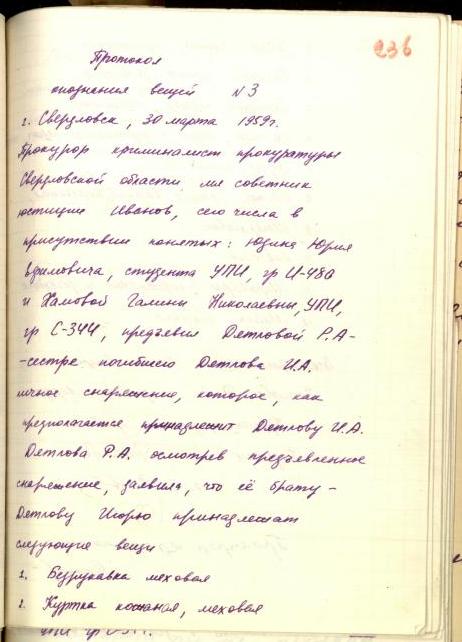 236
Протокол
опознания вещей N 3
г. Свердловск, 30 марта 1959г.
Прокурор криминалист прокуратуры
Свердловской области мл советник
юстиции Иванов, сего числа в
присутствии понятых: Юдина Юрия
Ефимовича, студента УПИ, гр И-48а
и Хамовой Галины Николаевны, УПИ,
гр С-344, предъявил Дятловой Р.А-
-сестре погибшего Дятлова И.А.
личное снаряжение, которое, как
предполагается принадлежит Дятлову И.А.
Дятлова Р.А. осмотрев предъявленное
снаряжение, заявила, что её брату -
Дятлову Игорю принадлежат
следующие вещи
1. Безрукавка меховая
2. Куртка кожаная, меховая